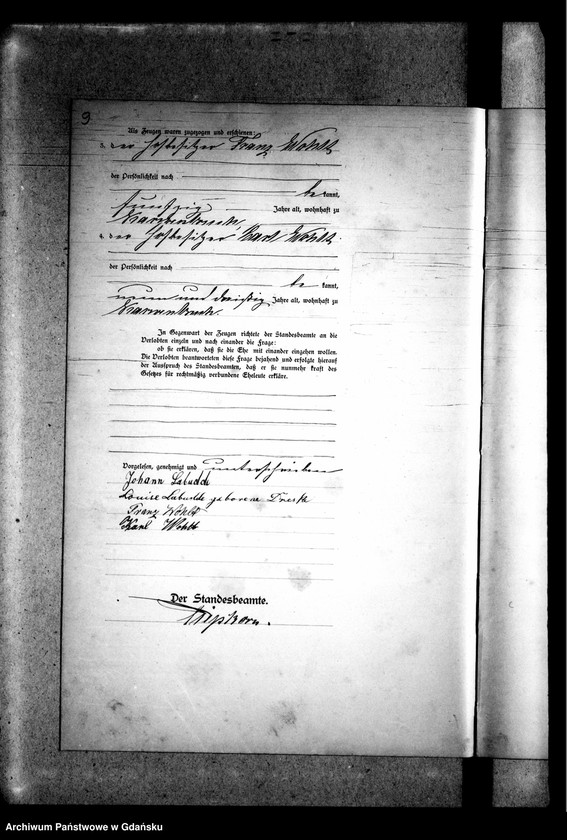 9
Als Zeugen waren zugezogen und erschienen:
3. der Hofbesitzer Franz Wohlt
der Persönlichkeit nach
be kannt,
fünfzig Jahre alt, wohnhaft zu
4. der Hofbesitzer Karl Wohlt.
der Persönlichkeit nach
be kannt,
neun und dreißig Jahre alt, wohnhaft zu
In Gegenwart der Zeugen richtete der Standesbeamte an die
Verlobten einzeln und nach einander die Frage:
ob sie erklären, daß sie die Ehe mit einander eingehen wollen.
Die Verlobten beantworteten diese Frage bejahend und erfolgte hierauf
der Ausspruch des Standesbeamten, daß er sie nunmehr kraft des
Gesetzes für rechtmäßig verbundene Eheleute erkläre.
Vorgelesen, genehmigt und unterschrieben
Johann Labudde
Louise Labudde geborene
Franz Wohlt
Karl Wohlt
Der Standesbeamte.
Archiwum Państwowe w Gdańsku